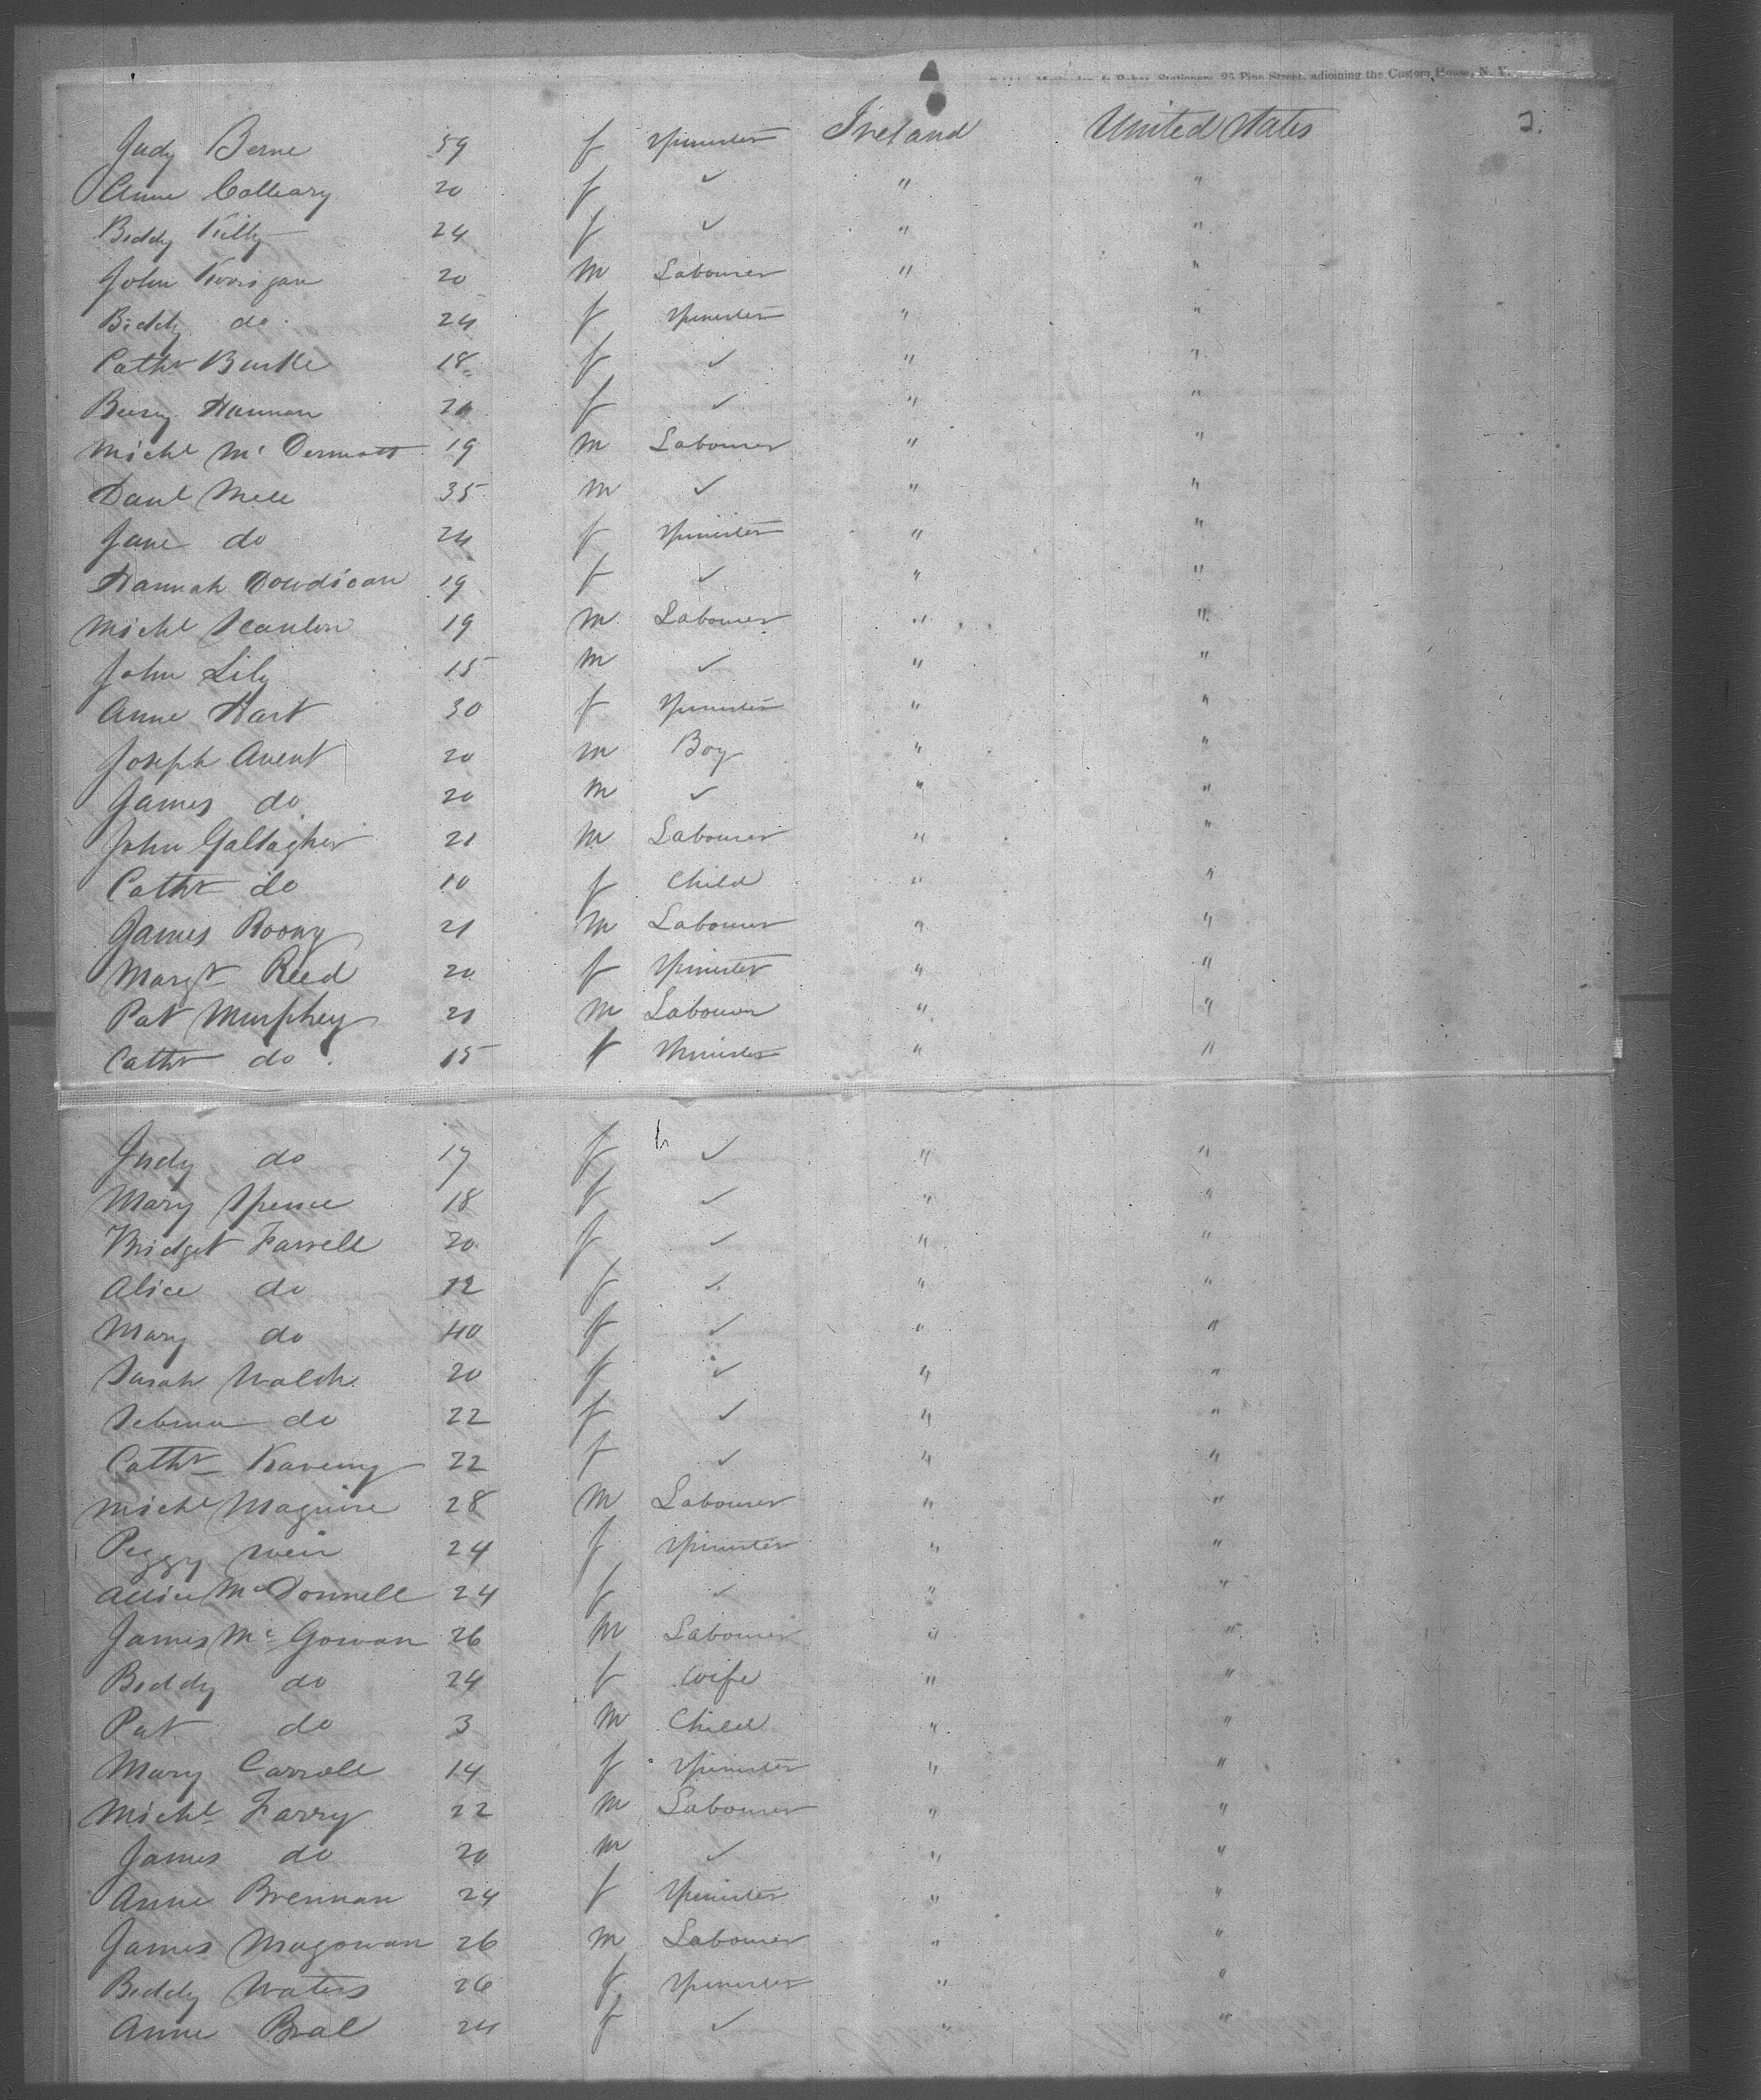 Stationers, 25 Pine Street, adjoining the Custom House, N. Y.
2.
Judy Berne 59 f Spinster Ireland United States
Anne Colleary 20 f ✓ " "
Biddy Killy 24 f ✓ " "
John Korrigan 20 m Labourer " "
Biddy do 24 f Spinster " "
Cathr Burke 18 f ✓ " "
Hannan f ✓ " "
Michl Mc Dermott 19 m Labourer " "
Danl Mee 35 m ✓ " "
Jane do 24 f Spinster " "
Hannah Dowdican 19 f ✓ " "
Michl Scanlon 19 m Labourer " "
John Lily 15 m ✓ " "
Anne Hart 30 f Spinster " "
Joseph Avent 20 m Boy " "
James do 20 m ✓ " "
John Gallagher 21 m Labourer " "
Cathr do 10 f Child " "
James Roony 21 m Labourer " "
Margt Reed 20 f Spinster " "
Pat Murphey 21 m Labourer " "
Cathr do 15 f Spinster " "
Judy do 17 f ✓ " "
Mary Spence 18 f ✓ " "
Bridget Farrell 20 f ✓ " "
Alice do 12 f ✓ " "
Mary do 40 f ✓ " "
Sarah Walsh 20 f ✓ " "
do 22 f ✓ " "
Cathr Kaveny 22 f ✓ " "
Michl Maguire 28 m Labourer " "
Peggy Weir 24 f Spinster " "
Mc Donnell 24 f ✓ " "
James Mc Gowan 26 m Labourer " "
Biddy do 24 f Wife " "
Pat do 3 m Child " "
Mary Carroll 14 f Spinster " "
Michl Farry 22 m Labourer " "
James do 20 m ✓ " "
Anne Brennan 24 f Spinster " "
James Magowan 26 m Labourer " "
Biddy Waters 26 f Spinster " "
Anne Beal 24 f ✓ " "